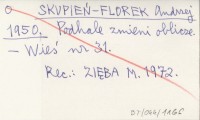 SKUPIEŃ-FLOREK Andrzej
1950. Podhale zmieni oblicze
- Wieś nr 31.
Rec.: ZIĘBA M. 1972.